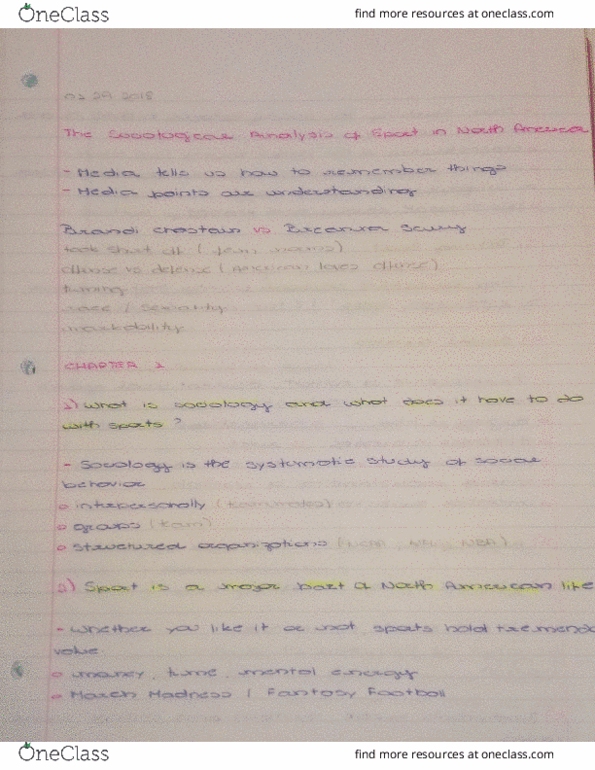 OneClass
find more resources at oneclass.com
29 2018
The Sociological Analysis of Sport in North America
- Media tells us how to remember things
- Media points our understanding
Brandi Chastain vs Breanna Scurry
took shirt off ( fem norms)
offense vs defense (American loves offense)
timing
race / sexuality
marketability
CHAPTER 1
1) What is sociology and what does it have to do
with sports ?
- Sociology is the systematic study of social
behavior
interpersonally (teammates)
groups (team)
structured organizations (NCAA, NFL, NBA)
2) Sport is a major part a North American life
- Whether you like it or not, sports hold tremendo
value
money, time, mental energy
March Madness / Fantasy Football
OneClass
find more resources at oneclass.com